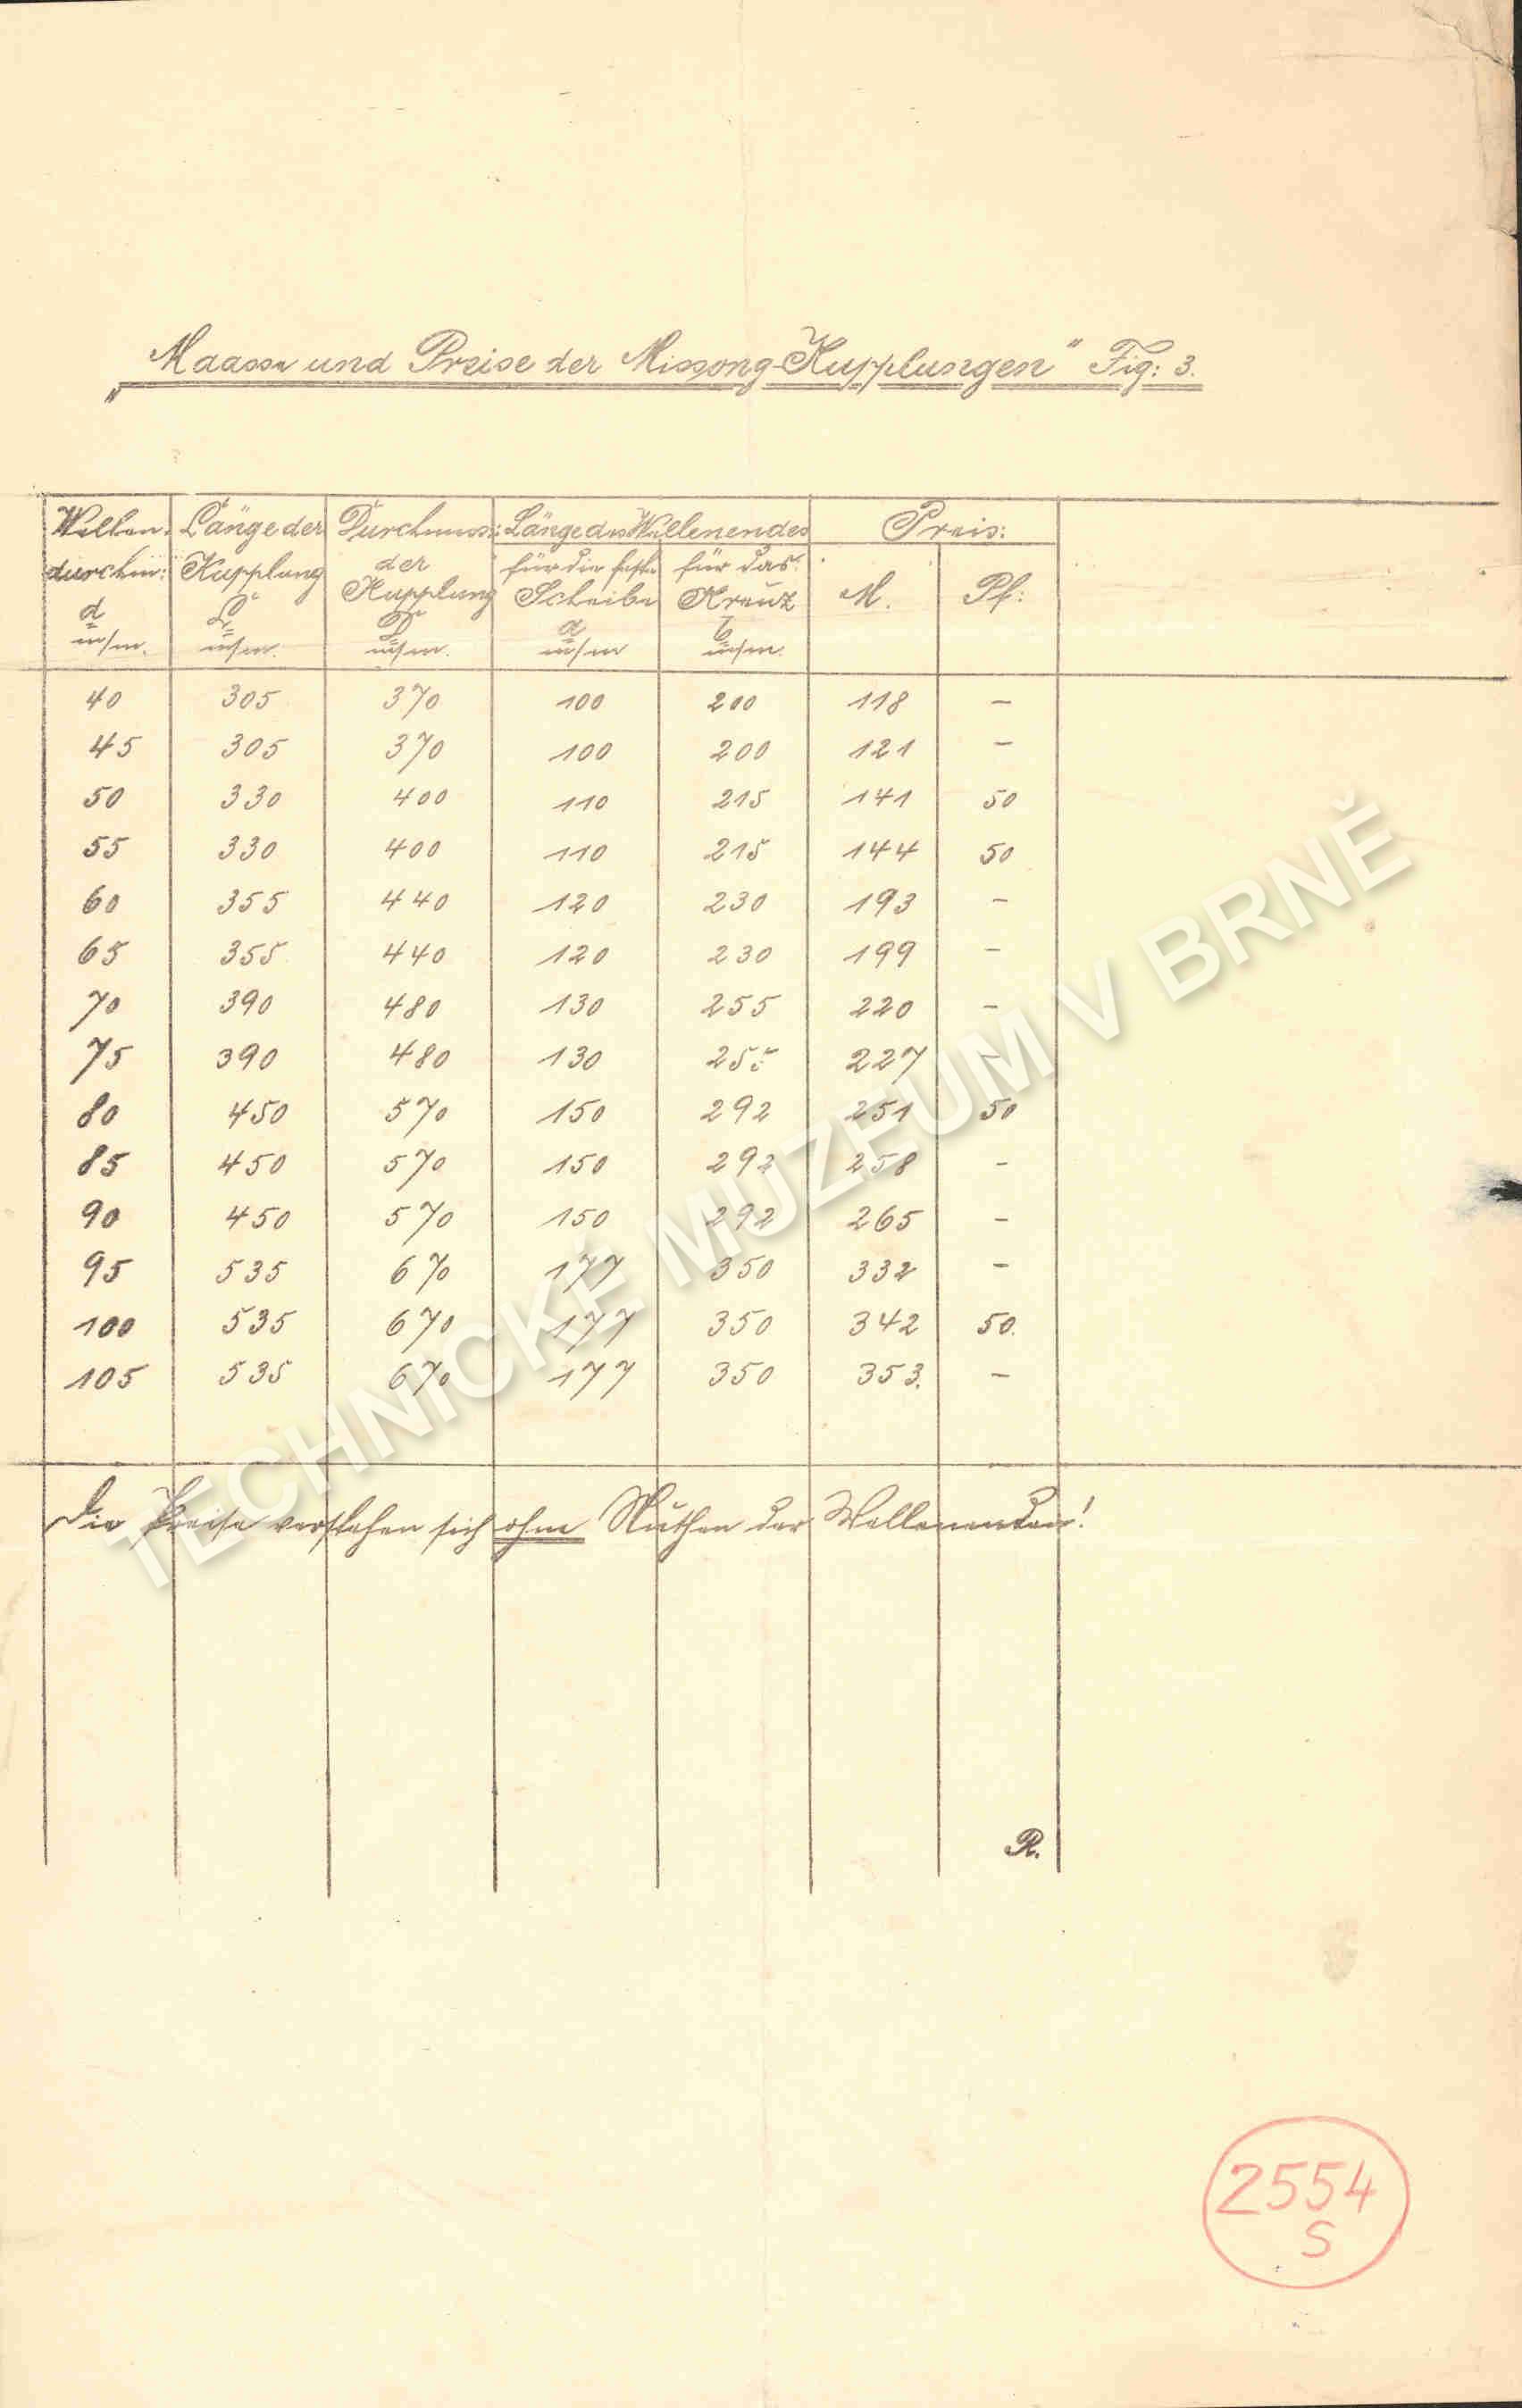 „Maasse und Preise der Missong-Kupplungen“ Fig: 3.
Wellen- Länge der Durchmess: Länge des Wellenendes Preis:
durchm: Kupplung der für die feste für das
Kupplung Scheibe Kreuz M. Pf:
d L D a b
m/m. m/m. m/m. m/m m/m.
40 305 370 100 200 118 –
45 305 370 100 200 121 –
50 330 400 110 215 141 50
55 330 400 110 215 144 50
60 355 440 120 230 193 –
65 355 440 120 230 199 –
70 390 480 130 255 220 –
75 390 480 130 255 227 –
80 450 570 150 292 251 50
85 450 570 150 292 258 –
90 450 570 150 292 265 –
95 535 670 177 350 332 –
100 535 670 177 350 342 50.
105 535 670 177 350 353. –
Die Preise verstehen sich ohne Nuthen der Wellenenden!
R.
2554
S
TECHNICKÉ MUZEUM V BRNĚ